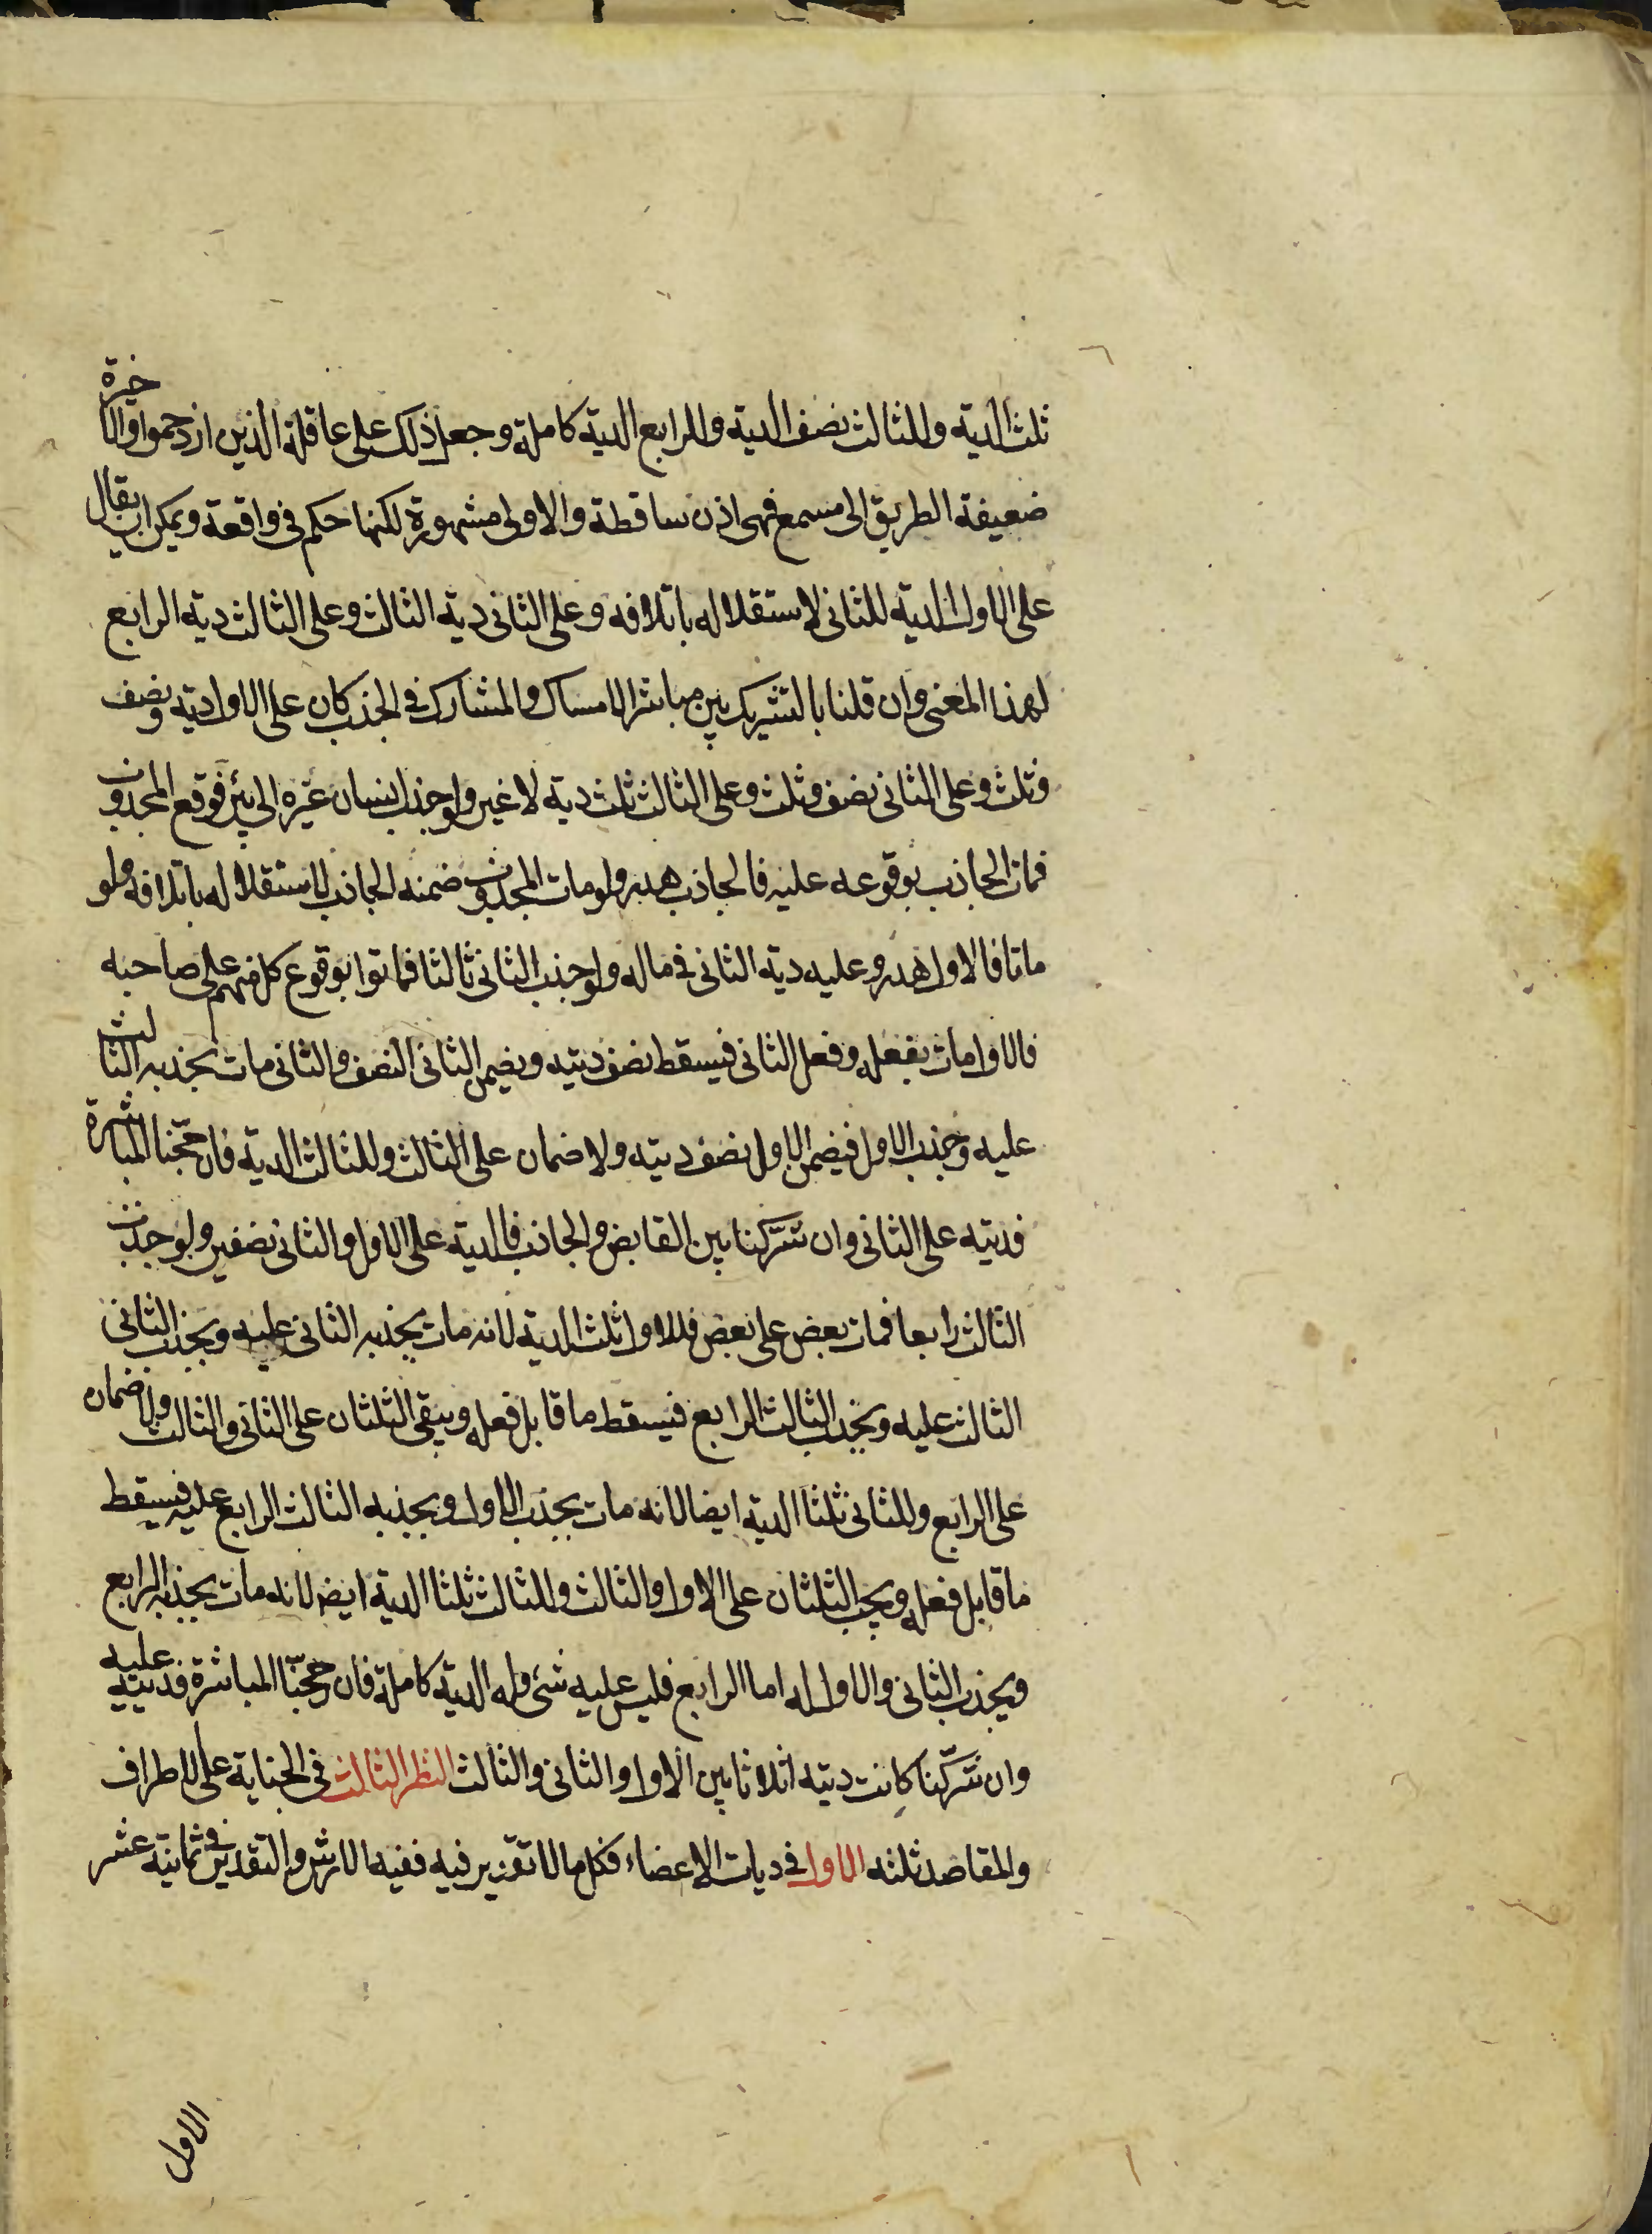 ثلث الدية وللثالث نصف الدية وللرابع الدية كاملة وجعل ذلك على عاقلة الذين ازدحموا والاخيرة
ضعيفة الطريق الى مسمع فهى اذن ساقطة والاولى مشهورة لكنها حكم فى واقعة ويمكن ان يقال
على الاول الدية للثانى لاستقلاله باتلافه وعلى الثانى دية الثالث وعلى الثالث دية الرابع
لهذا المعنى وان قلنا بالتشريك بين مباشر الامساك والمشارك فى الجذب كان على الاول دية ونصف
وثلث وعلى الثانى نصف وثلث وعلى الثالث ثلث دية لا غير ولو جذب انسان غيره الى بئر فوقع المجذوب
فمات الجاذب بوقوعه عليه فالجاذب هدر ولو مات المجذوب ضمنه الجاذب لاستقلاله باتلافه ولو
ماتا فالاول هدر وعليه دية الثانى فى ماله ولو جذب الثانى ثالثا فماتوا بوقوع كل منهم على صاحبه
فالاول مات بفعله وفعل الثانى فيسقط نصف ديته ويضمن الثانى النصف والثانى مات بجذبه الثالث
عليه وجذب الاول فيضمن الاول نصف ديته ولا ضمان على الثالث وللثالث الدية فان رجحنا المباشرة
فديته على الثانى وان شرّكنا بين القابض والجاذب فالدية على الاول والثانى نصفين ولو جذب
الثالث رابعا فمات بعض على بعض فللاول ثلثا الدية لانه مات بجذبه الثانى عليه وبجذب الثانى
الثالث عليه وبجذب الثالث الرابع فيسقط ما قابل فعله ويبقى الثلثان على الثانى والثالث ولا ضمان
على الرابع وللثانى ثلثا الدية ايضا لانه مات بجذب الاول وبجذبه الثالث الرابع عليه فيسقط
ما قابل فعله ويجب الثلثان على الاول والثالث وللثالث ثلثا الدية ايضا لانه مات بجذبه الرابع
وبجذب الثانى والاول له اما الرابع فليس عليه شئ وله الدية كاملة فان رجحنّا المباشرة فديته عليه
وان شرّكنا كانت ديته اثلاثا بين الاول والثانى والثالث النظر الثالث فى الجناية على الاطراف
والمقاصد ثلثه الاول فى ديات الاعضاء فكل ما لا تقدير فيه ففيه الارش والتقدير فى ثمانية عشر
الاول